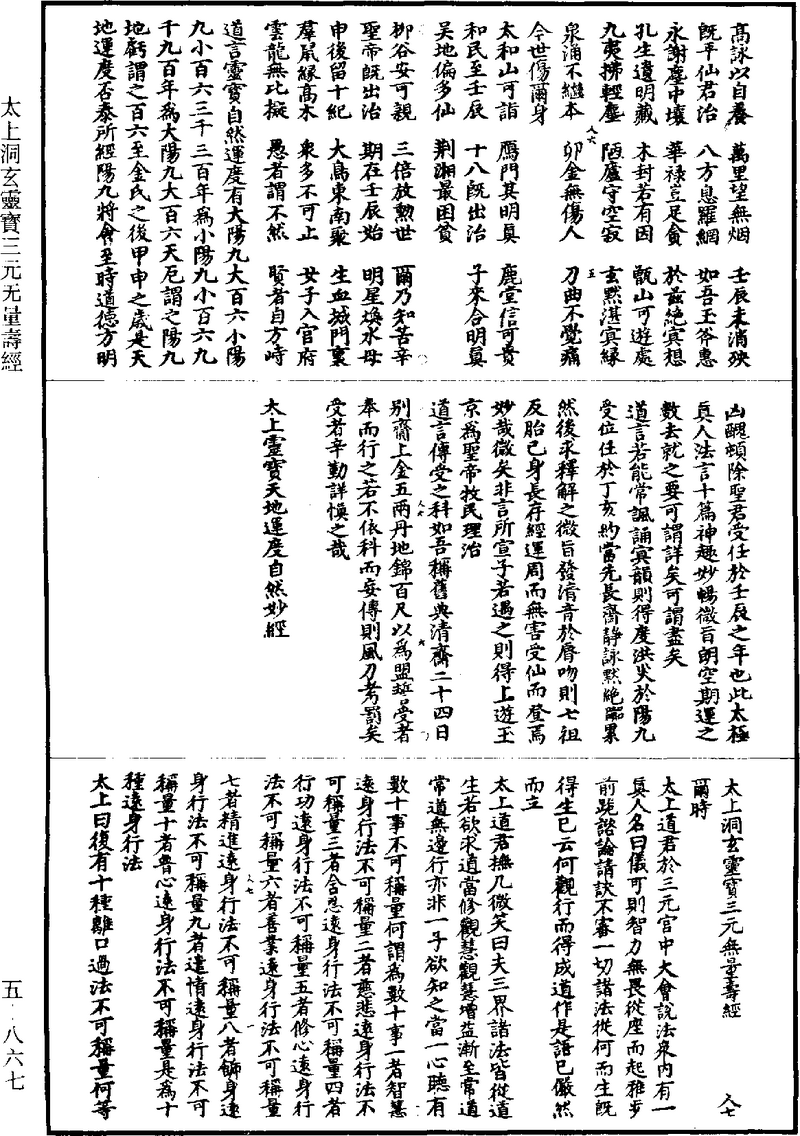 高詠以自養　萬里望無烟　壬辰未消殃
既平仙君治　八方息羅網　如吾王爷惠
永謝塵中壤　華祿豈足貪　於茲絕冥想
孔生遺明藏　木封若有因　甑山可遊處
九夷拂輕塵　陋廬守空寂　玄默湛冥緣
泉涌不繼本　卯金無傷人　刀曲不覺痛
今世傷爾身
太和山可詣　鴈門其明真　鹿堂信可貴
和民至壬辰　十八既出治　子來合明真
吴地偏多仙　荆湘最困貧
柳谷安可親　三倍放勲世　爾乃知苦辛
聖帝既出治　期在壬辰始　明星煥水母
申後留十紀　大鳥東南聚　生血城門裏
羣鼠緣高木　衆多不可止　女子入官府
雲龍無比擬　愚者謂不然　賢者自方峙
道言靈寶自然運度有大陽九大百六小陽
九小百六三千三百年為小陽九小百六九
千九百年為大陽九大百六天厄謂之陽九
地虧謂之百六至金氏之後甲申之歲是天
地運度否泰所經陽九將會至時道德方明
凶醜頓除聖君受任於壬辰之年也此太極
真人法言十篇神趣妙暢微旨朗空期運之
數去就之要可謂詳矣可謂盡矣
道言若能常諷誦冥韻則得度洪災於陽九
受位任於丁亥約當先長齋静詠默絶囂累
然後求釋解之微旨發清音於唇吻則七祖
反胎已身長存經運周而無害受仙而登焉
妙哉微矣非言所宣子若遇之則得上遊玉
京為聖帝牧民理治
道言傳受之科如吾稱舊典清齋二十四日
別齋上金五兩丹地錦百尺以為盟誓受者
奉而行之若不依科而妄傳則風刀考罰矣
受者辛勤詳慎之哉
太上靈寶天地運度自然妙經
太上洞玄靈寶三元無量壽經　人七
爾時
太上道君於三元宫中大會說法衆内有一
真人名曰儀可則智力無畏從座而起雅步
前跪諮論請訣不審一切諸法從何而生既
得生已云何觀行而得成道作是語已儼然
而立
太上道君撫几微笑曰夫三界諸法皆從道
生若欲求道當修觀慧觀慧增益漸至常道
常道無邊行亦非一子欲知之當一心聽有
數十事不可稱量何謂為數十事一者智慧
遠身行法不可稱量二者慈悲遠身行法不
可稱量三者含忍遠身行法不可稱量四者
行功遠身行法不可稱量五者修心遠身行
法不可稱量六者善業遠身行法不可稱量
七者精進遠身行法不可稱量八者飾身遠
身行法不可稱量九者遣情遠身行法不可
稱量十者普心遠身行法不可稱量是為十
種遠身行法
太上曰復有十種離口過法不可稱量何等
太上洞玄靈寶三元无量壽經
五·八六七